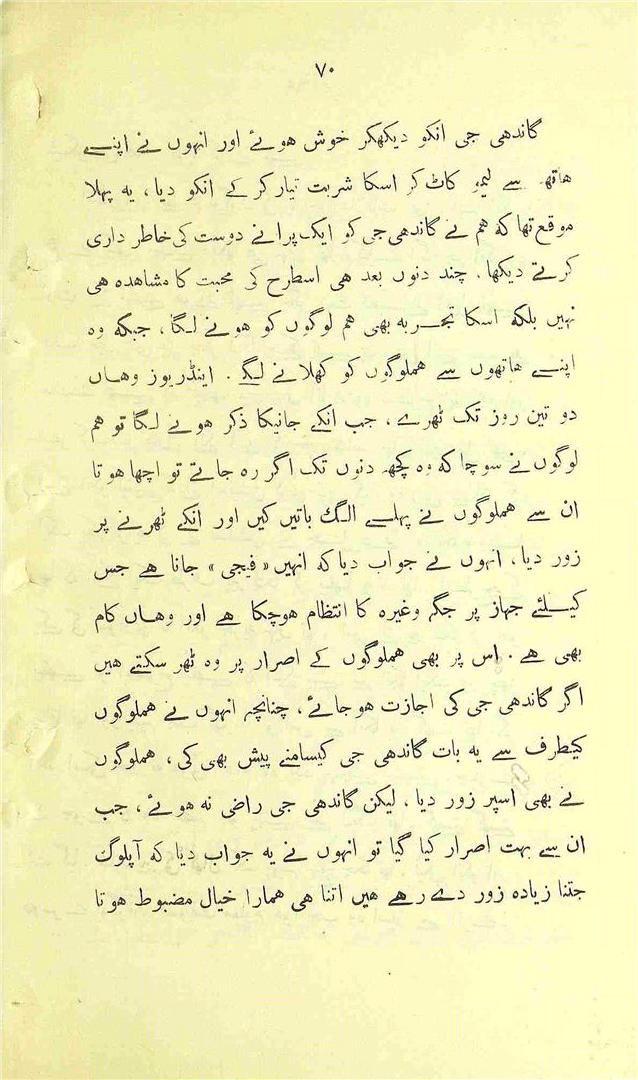 ۷۰
گاندھی جی انکو دیکھکر خوش ہوئے اور انہوں نے اپنے
ہاتھ سے لیمو کاٹ کر اسکا شربت تیار کر کے انکو دیا، یہ پہلا
موقع تھا کہ ہم نے گاندھی جی کو ایک پرانے دوست کی خاطر داری
کرتے دیکھا. چند دنوں بعد ہی اسطرح کی محبت کا مشاہدہ ہی
نہیں بلکہ اسکا تجربہ بھی ہم لوگوں کو ہونے لگا، جبکہ وہ
اپنے ہاتھوں سے ہملوگوں کو کھلانے لگے. اینڈریوز وہاں
دو تین روز تک ٹھرے، جب انکے جانیکا ذکر ہونے لگا تو ہم
لوگوں نے سوچا کہ وہ کچھ دنوں تک اگر رہ جاتے تو اچھا ہوتا
ان سے ہملوگوں نے پہلے الگ باتیں کیں اور انکے ٹھرنے پر
زور دیا، انہوں نے جواب دیا کہ انہیں «فیجی» جانا ہے جس
کیلئے جہاز پر جگہ وغیرہ کا انتظام ہوچکا ہے اور وہاں کام
بھی ہے. اس پر بھی ہملوگوں کے اصرار پر وہ ٹھر سکتے ہیں
اگر گاندھی جی کی اجازت ہوجائے، چنانچہ انہوں نے ہملوگوں
کیطرف سے یہ بات گاندھی جی کیسامنے پیش بھی کی، ہملوگوں
نے بھی اسپر زور دیا، لیکن گاندھی جی راضی نہ ہوئے، جب
ان سے بہت اصرار کیا گیا تو انہوں نے یہ جواب دیا کہ آپلوگ
جتنا زیادہ زور دے رہے ہیں اتنا ہی ہمارا خیال مضبوط ہوتا